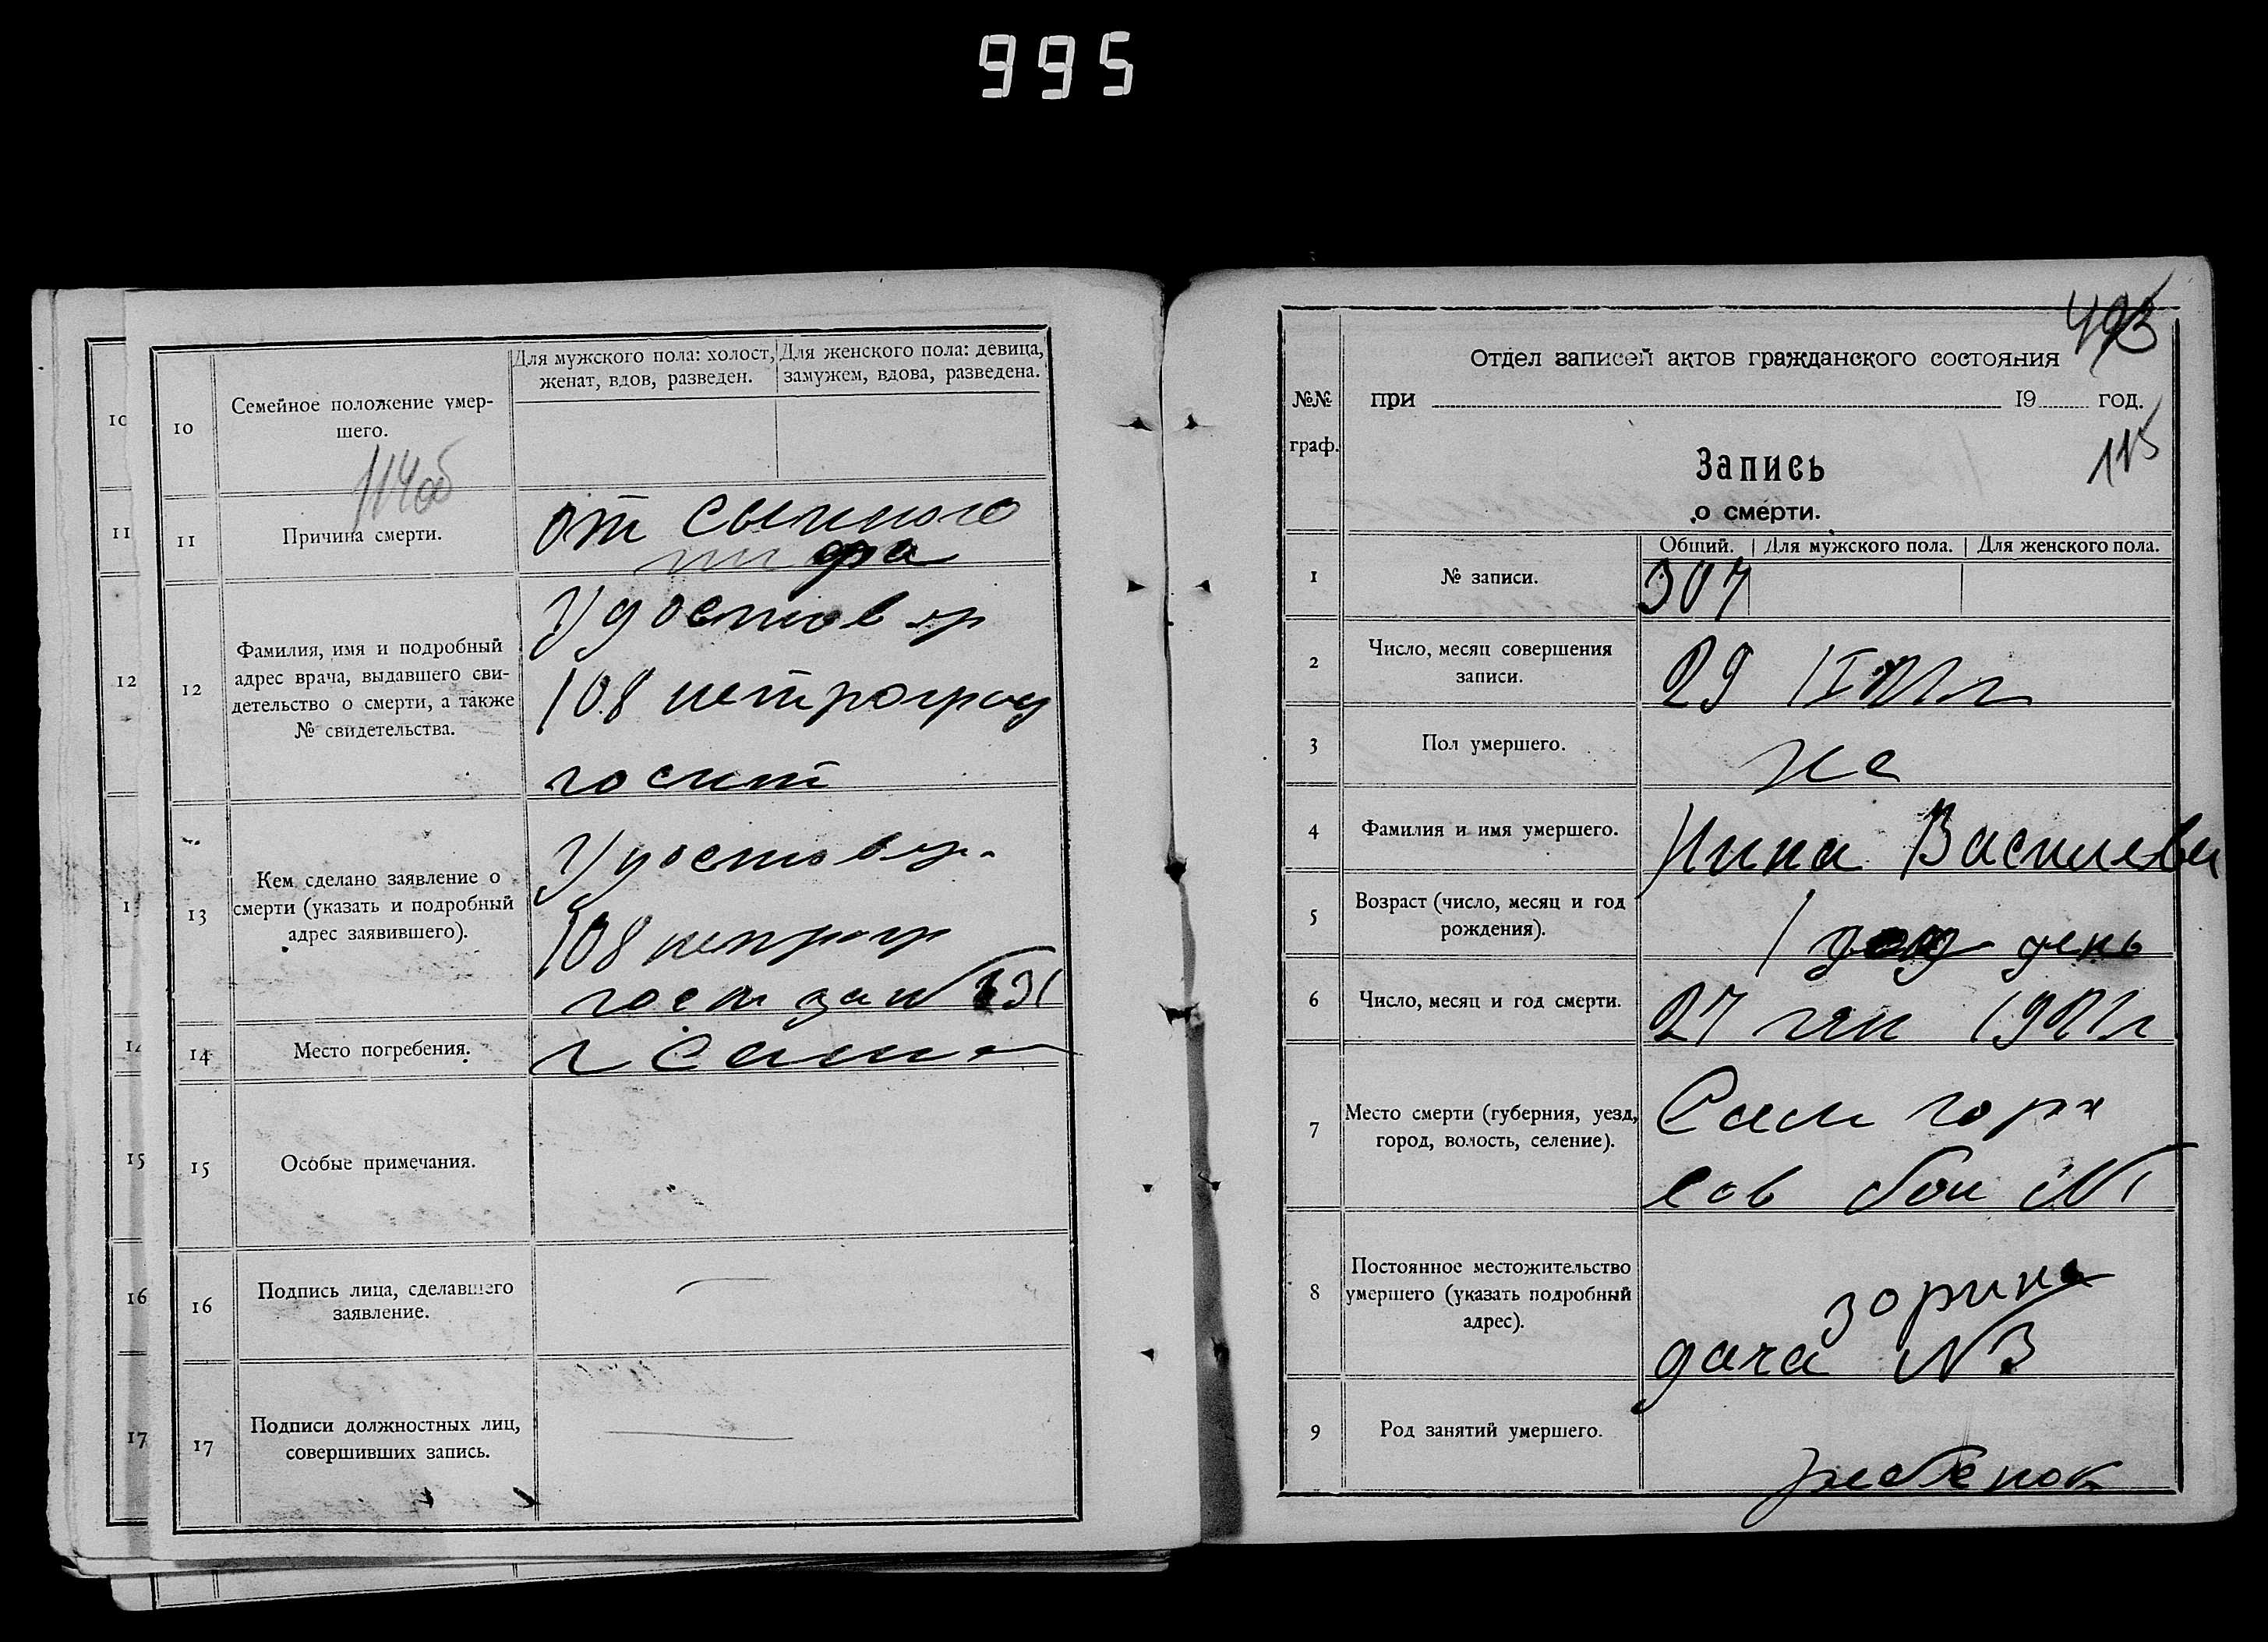 995
10
11
12
15
16
17
10
Семейное положение умер-
шего.
Для мужского пола: холост,
женат, вдов, разведен.
Для женского пола: девица,
замужем, вдова, разведена.
114об
11
Причина смерти.
от сыпного
тифа
12
Фамилия, имя и подробный
адрес врача, выдавшего сви-
детельство о смерти, а также
№ свидетельства.
Удостовер
108 петроград
госпит
13
Кем сделано заявление о
смерти (указать и подробный
адрес заявившего).
Удостовер.
108 петрогр
госп за №
14
Место погребения.
г
15
Особые примечания.
16
Подпись лица, сделавшего
заявление.
17
Подписи должностных лиц,
совершивших запись.
Отдел записей актов гражданского состояния
№№
граф.
при 19 год.
115
Запись
о смерти.
Общий. Для мужского пола. Для женского пола.
1
№ записи.
307
2
Число, месяц совершения
записи.
29
3
Пол умершего.
же
4
Фамилия и имя умершего.
Нина Васильева
5
Возраст (число, месяц и год
рождения).
1 день
6
Число, месяц и год смерти.
27 янв 1921 г
7
Место смерти (губерния, уезд,
город, волость, селение).
Сам гор
сов бол №1
8
Постоянное местожительство
умершего (указать подробный
адрес).
зорина
дача №3
9
Род занятий умершего.
ребенок